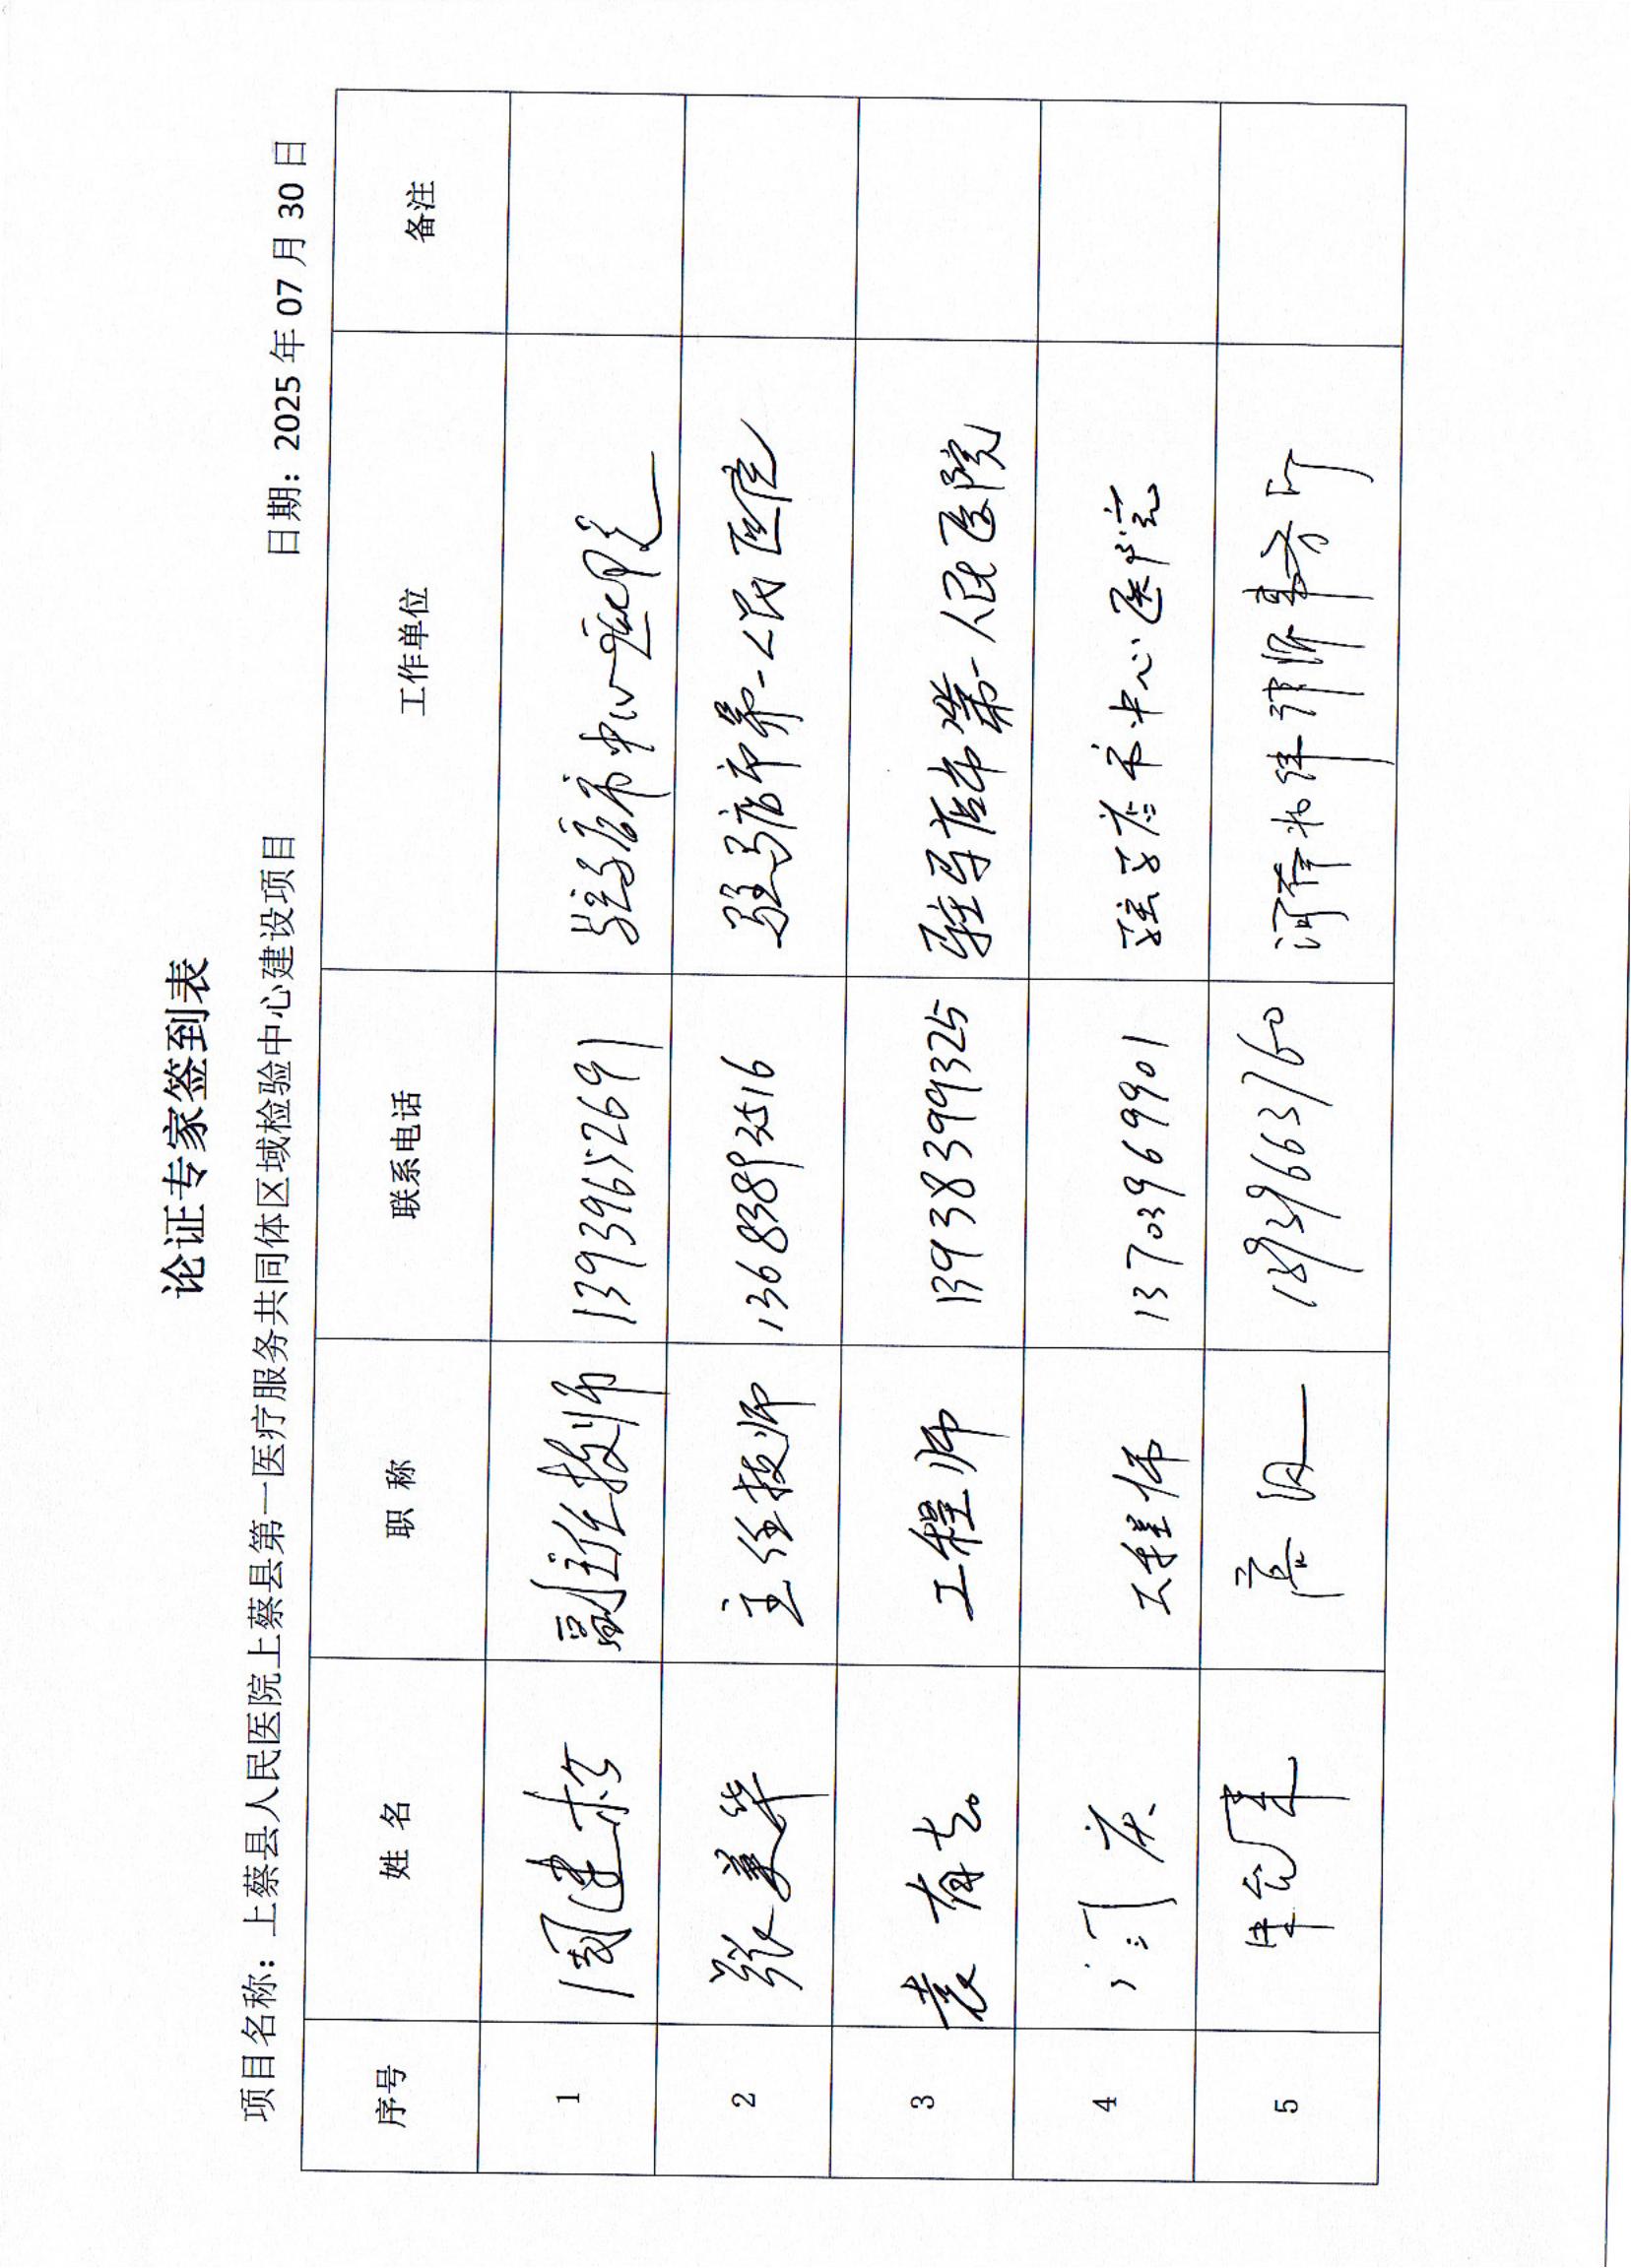 论证专家签到表
项目名称：上蔡县人民医院上蔡县第一医疗服务共同体区域检验中心建设项目 日期：2025 年 07 月 30 日
序号 姓 名 职 称 联系电话 工作单位 备注
1 周建 副主任技师 13939652691 驻马店市中心医院
2 张美华 主任技师 13683893516 驻马店市第一人民医院
3 袁有志 工程师 13938399325 驻马店市第一人民医院
4 庆 工程师 13703969901 驻马店市中心医院
5 律师事务所